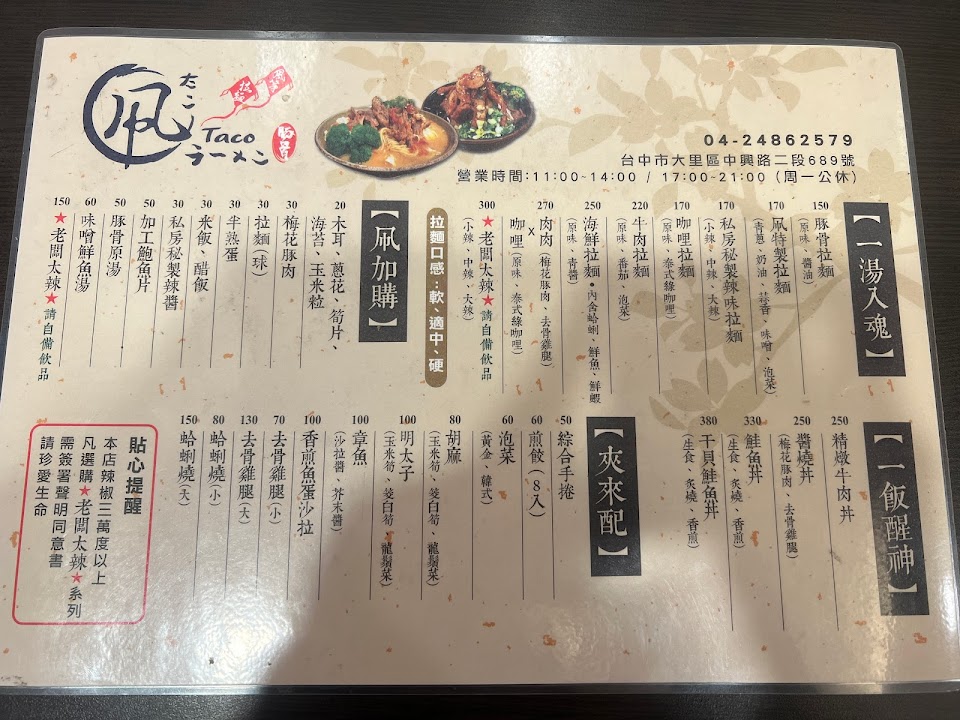 たこ
凧
Taco
ラーメン
04-24862579
台中市大里區中興路二段689號
營業時間:11:00~14:00 / 17:00~21:00 (周一公休)
【一湯入魂】
150 豚骨拉麵
(原味、醬油)
170 凧特製拉麵
(青蔥、奶油、蒜香、味噌、泡菜)
170 私房秘製辣味拉麵
(小辣、中辣、大辣)
170 咖哩拉麵
(原味、泰式綠咖哩)
220 牛肉拉麵
(原味、番茄、泡菜)
250 海鮮拉麵●內含蛤蜊、鮮魚、鮮蝦
(原味、青醬)
270 肉肉(梅花豚肉、去骨雞腿)
x
咖哩(原味、泰式綠咖哩)
300 ★老闆太辣★請自備飲品
(小辣、中辣、大辣)
拉麵口感:軟、適中、硬
【凧加購】
20 木耳、蔥花、筍片、
海苔、玉米粒
90 梅花豚肉
30 拉麵(球)
30 半熟蛋
30 米飯、醋飯
30 私房秘製辣醬
50 加工鮑魚片
50 豚骨原湯
60 味噌鮮魚湯
150 ★老闆太辣★請自備飲品
【一飯醒神】
250 精燉牛肉丼
250 醬燒丼
(梅花豚肉、去骨雞腿)
330 鮭魚丼
(生食、炙燒、香煎)
380 干貝鮭魚丼
(生食、炙燒、香煎)
【夾來配】
50 綜合手捲
60 煎餃(8入)
60 泡菜
(黃金、韓式)
80 胡麻
(玉米筍、筊白筍、龍鬚菜)
100 明太子
(玉米筍、筊白筍、龍鬚菜)
100 章魚
(沙拉醬、芥末醬)
100 香煎魚蛋沙拉
70 去骨雞腿(小)
130 去骨雞腿(大)
80 蛤蜊燒(小)
150 蛤蜊燒(大)
貼心提醒
本店辣椒三萬度以上
凡選購★老闆太辣★系列
需簽署聲明同意書
請珍愛生命